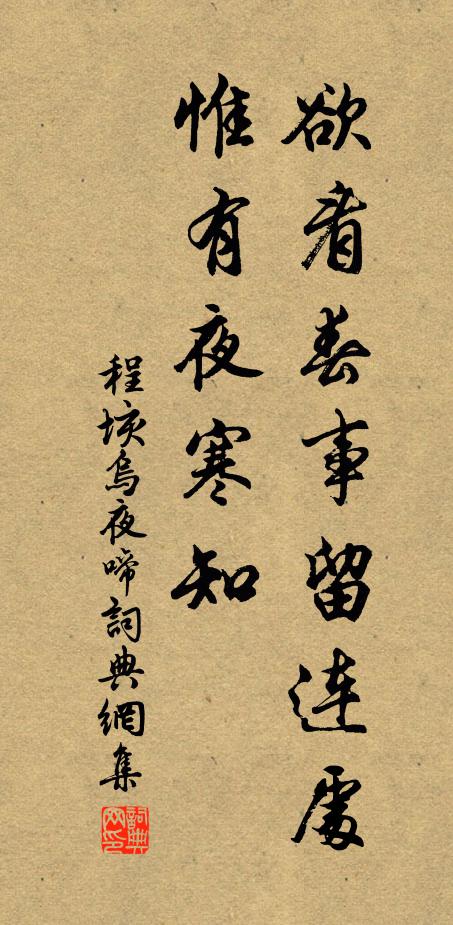 欲看春事留连處
惟有夜寒知
程垓烏夜啼詞典網集
詞典网印